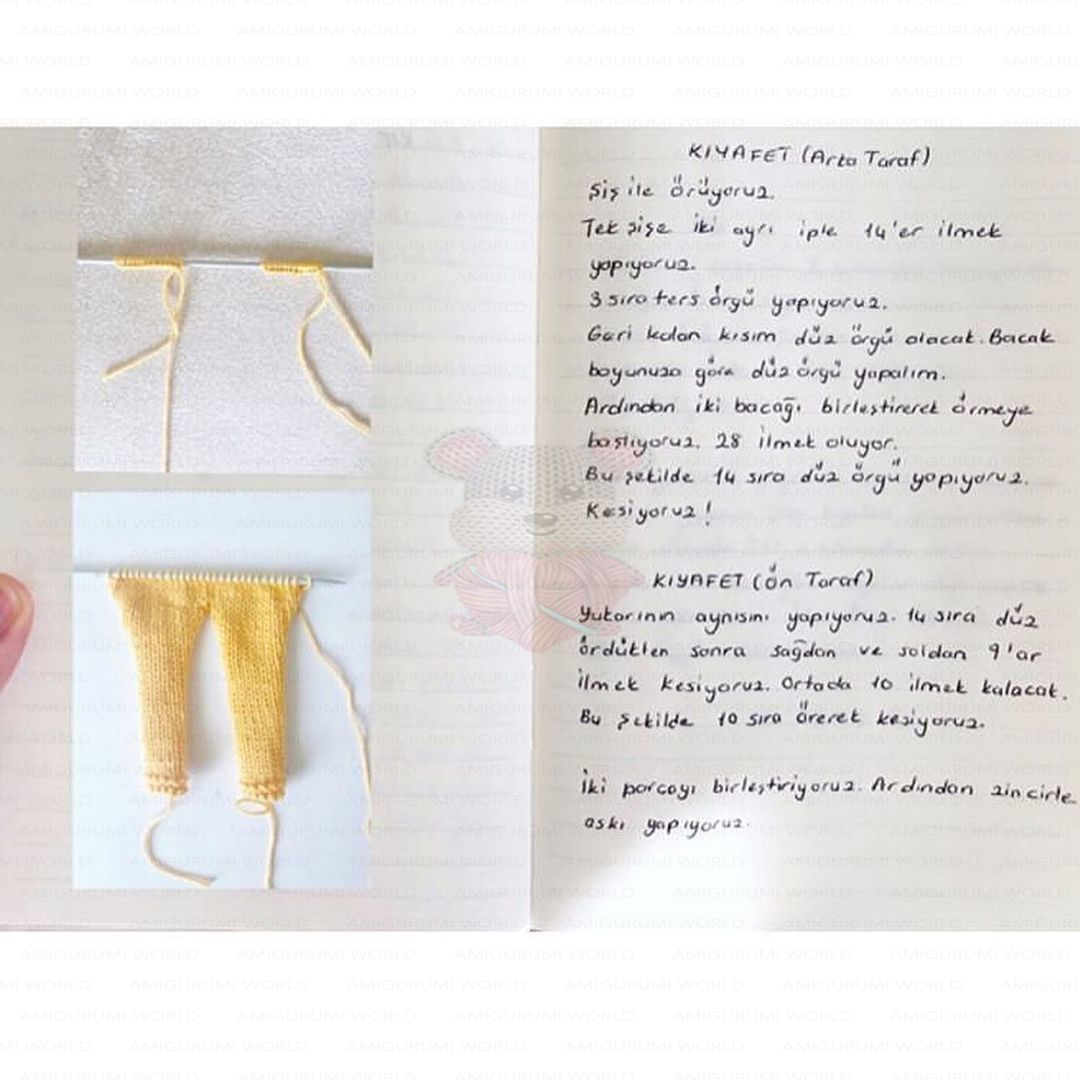 KIYAFET (Arka Taraf)
Şiş ile örüyoruz.
Tek şişe iki ayrı iple 14'er ilmek
yapıyoruz.
3 sıra ters örgü yapıyoruz.
Geri kalan kısım düz örgü olacak. Bacak
boyunuza göre düz örgü yapalım.
Ardından iki bacağı birleştirerek örmeye
başlıyoruz. 28 ilmek oluyor.
Bu şekilde 14 sıra düz örgü yapıyoruz.
Kesiyoruz!
KIYAFET (Ön Taraf)
Yukarının aynısını yapıyoruz. 14 sıra düz
ördükten sonra sağdan ve soldan 9'ar
ilmek kesiyoruz. Ortada 10 ilmek kalacak.
Bu şekilde 10 sıra örerek kesiyoruz.
İki parçayı birleştiriyoruz. Ardından zincirle
askı yapıyoruz.
AMIGURUMI WORLD